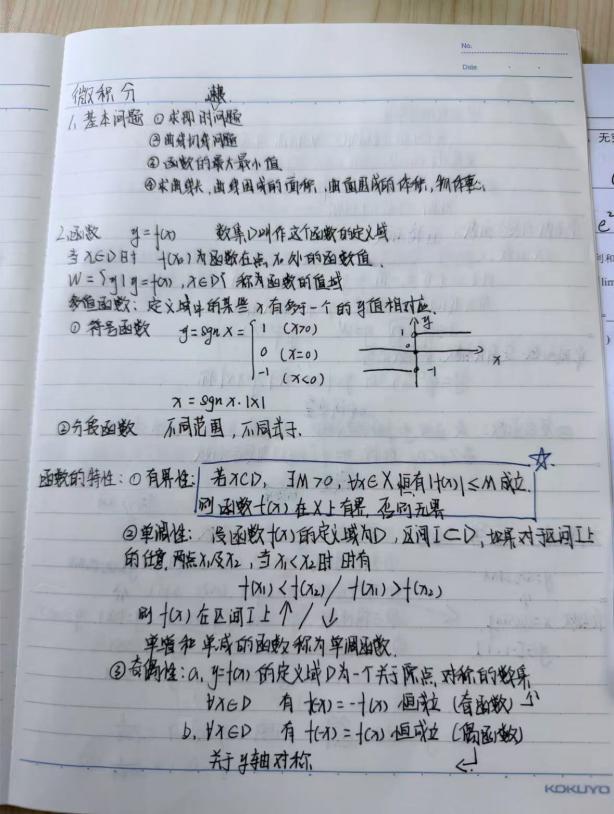 No.
Date
微积分
1. 基本问题 ①求即时问题
②曲线切线问题
③函数的最大最小值
④求曲线长,曲线围成的面积,曲面围成的体积,物体重心
2.函数 y=f(x) 数集D叫作这个函数的定义域.
当x∈D时 f(x₀)为函数在点x₀处的函数值.
W={y|y=f(x),x∈D} 称为函数的值域
多值函数:定义域中的某些x有多于一个的y值相对应.
①符号函数 y=sgn x= { 1 (x>0)
0 (x=0)
-1 (x<0)
y
1
0
x
-1
x=sgn x·|x|
②分段函数 不同范围,不同式子.
函数的特性:①有界性: 若X⊂D, ∃M>0,∀x∈X恒有|f(x)|≤M成立.
则函数f(x)在X上有界,否则无界
②单调性: 设函数f(x)的定义域为D,区间I⊂D,如果对于区间I上
的任意两点x₁及x₂,当x₁<x₂时 时有
f(x₁)<f(x₂)/ f(x₁)>f(x₂)
则f(x)在区间I上↑/↓
单增和单减的函数称为单调函数.
③奇偶性:a, y=f(x)的定义域D为一个关于原点对称的数集
∀x∈D 有f(-x)=-f(x)恒成立(奇函数)
b, ∀x∈D 有f(-x)=f(x)恒成立(偶函数)
关于y轴对称
KOKUYO